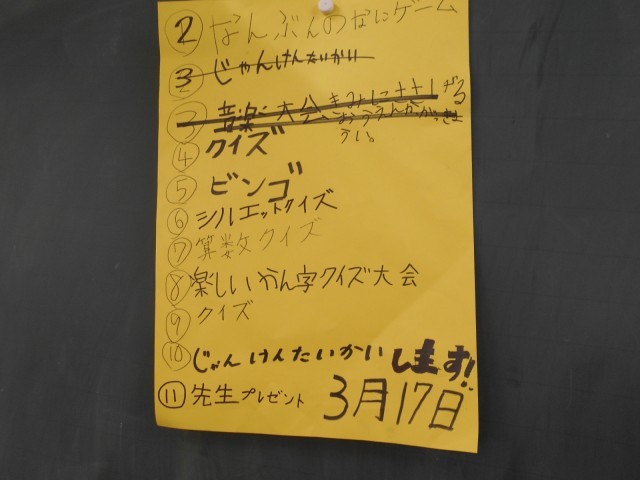 ② なんぶんのなにゲーム
③ じゃんけんたいかい
音楽大会
④ クイズ
⑤ ビンゴ
⑥ シルエットクイズ
⑦ 算数クイズ
⑧ 楽しいかん字クイズ大会
⑨ クイズ
⑩ じゃんけんたいかいします!
⑪ 先生プレゼント 3月17日